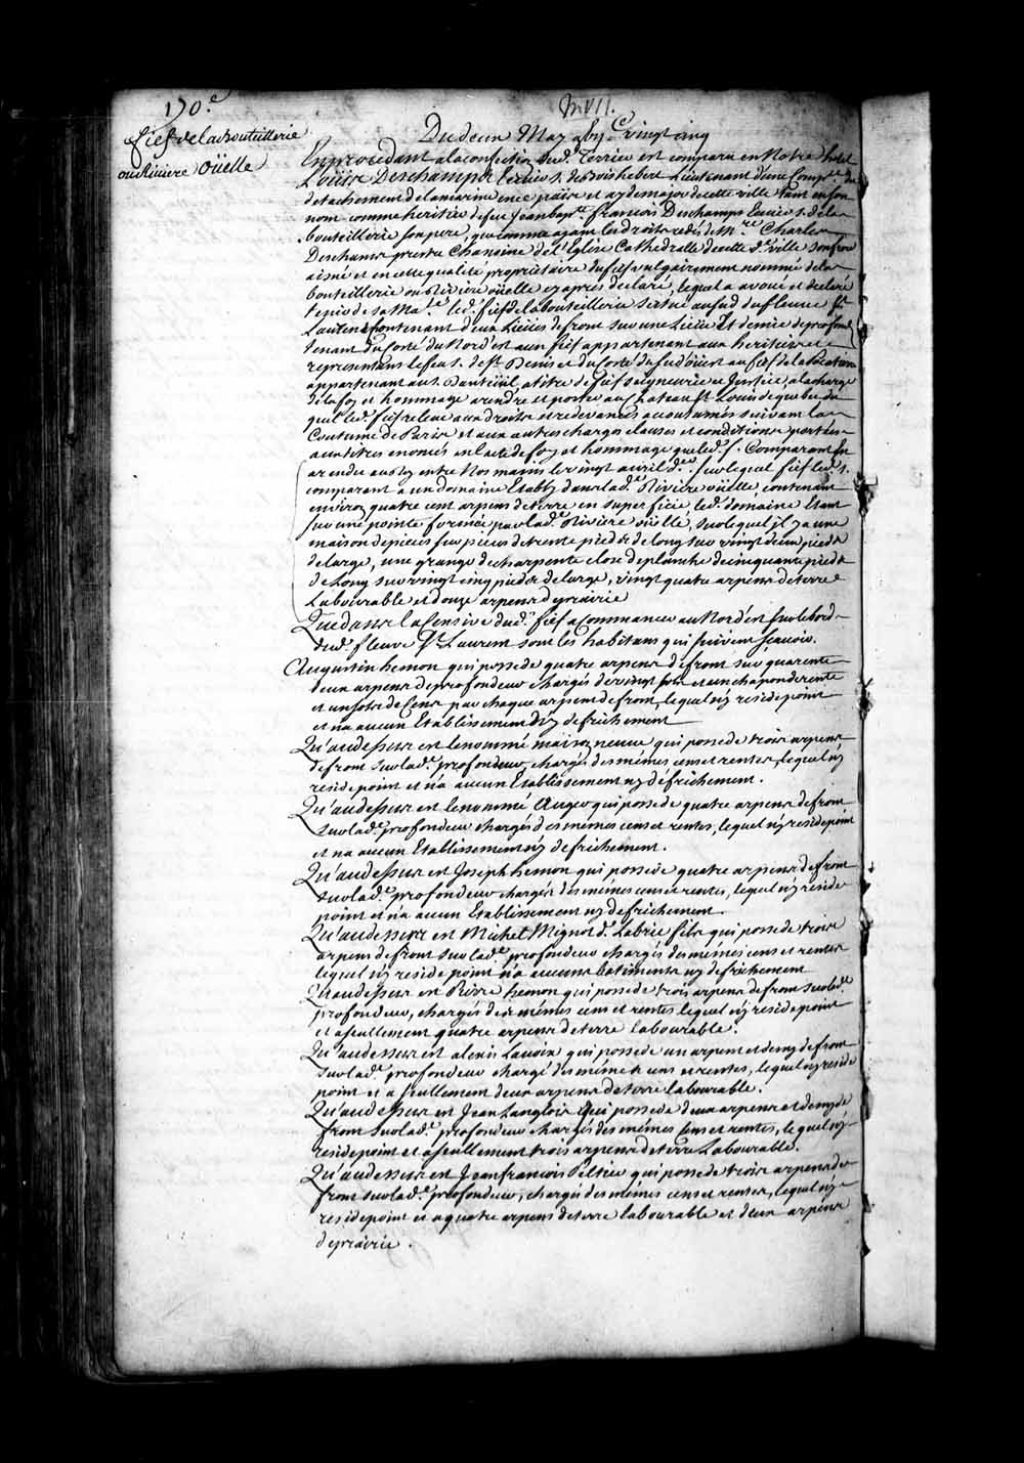 170.e
fief de la Bouteillerie
ou Riviere Oüelle
Du deux May vij.c vingt cinq
En procedant a la confection dud. Terrier est comparu en Notre hotel
Loüis Deschamps Ecuier s. de Boishebert Lieutenant d'une Comp.e du
detachement de la marine en ce païis et aydemajor de cette ville tant en son
nom comme heritier de feu Jean bap.te francois Deschamps Ecuier s. de la
bouteillerie son pere, que comme ayant les droits cedés de M.re Charles
Deschamps prestre Chanoine de l'Eglise Cathedralle de cette d.e ville son frere
aisné et en cette qualité proprietaire du fief vulgairement nommé de la
bouteillerie ou Riviere oüelle cy apres declaré, lequel a avoué et declaré
tenir de sa Ma.té led. fief de la bouteillerie scitué au sud du fleuve S.t
Laurent contenant deux Lieües de front sur une Lieüe Et demie de profond.r
tenant du costé du Nord'est au fief appartenant aux heritiers et
representans le feu s. de S.t Denis et du costé du sud'oüest au fief de la Pocatiere
appartenant au s. Dauteüil, a titre de fief seigneurie et Justice, a la charge
de la foy et hommage a rendre et porter au Chateau S.t Louis de quebec du
quel led. fief releve aux droits et redevances accoutumés suivant la
Coutume de Paris et aux autres charges clauses et conditions portées
aux titres enoncés en l'acte de foy et hommage que led. s. Comparant En
a rendu au Roy entre Nos mains le vingt avril d.er sur lequel fief led. s.
comparant a un domaine Etably dans lad.e Riviere oüelle, contenant
environ quatre cent arpens de terre en superficie led. domaine Etant
sur une pointe formée par lad.e Riviere oüelle, sur lequel il y a une
maison de pieces sur pieces de trente pieds de long sur vingt deux pieds
de large, une grange de charpente close de planche de cinquante pieds
de Long sur vingt cinq pieds de large, vingt quatre arpens de terre
Labourable et douze arpens de prairie
Que dans la Censive dud. fief a Commencer au Nord'est sur le bord
dud. fleuve S.t Laurent sont les habitans qui suivent sçavoir.
Augustin hemon qui possede quatre arpens de front sur quarente
deux arpens de profondeur chargés de vingt sols et un chapon de rente
et un sols de Cens par chaque arpent de front, lequel n'y reside point
et n'a aucun Etablissement N'y defrichement
Qu'audessus est le nommé maison neuve qui possede trois arpens
de front sur lad.e profondeur, chargés des mêmes cens et rentes, lequel n'y
reside point et n'a aucun Etablissement ny défrichement.
Qu'audessus est le nommé Auger qui possede quatre arpens de front
sur lad.e profondeur chargés des memes cens et rentes, lequel n'y reside point
et n'a aucun Etablissement n'y defrichement.
Qu'audessus est Joseph hemon qui possede quatre arpens de front
sur lad.e profondeur chargés des mémes cens et rentes, lequel n'y reside
point et n'a aucun Etablissement ny defrichement.
Qu'audessus est Michel Mignot d.t Labrie fils qui possede trois
arpens de front sur lad.e profondeur chargés des mémes cens et rentes
lequel n'y reside point n'a aucuns batimens ny defrichement
Qu'audessus est Pierre hemon qui possede trois arpens de front sur lad.e
profondeur, chargés des mémes cens et rentes lequel n'y reside point
et a seullement quatre arpens de terre labourable.
Qu'audessus est alexis Lavoix qui possede un arpent et demy de front
sur lad.e profondeur chargé des mémes cens et rentes, lequel n'y reside
point et a seullement deux arpens de terre labourable.
Qu'audessus est Jean Langlois qui possede deux arpens et demy de
front sur lad.e profondeur chargés des mémes Cens et rentes, lequel n'y
reside point et a seullement trois arpens de terre Labourable.
Qu'audessus est Jean francois Peltier qui possede trois arpens de
front sur lad.e profondeur, chargés des mémes cens et rentes, lequel n'y
reside point et a quatre arpens de terre labourable et deux arpens
de prairie.